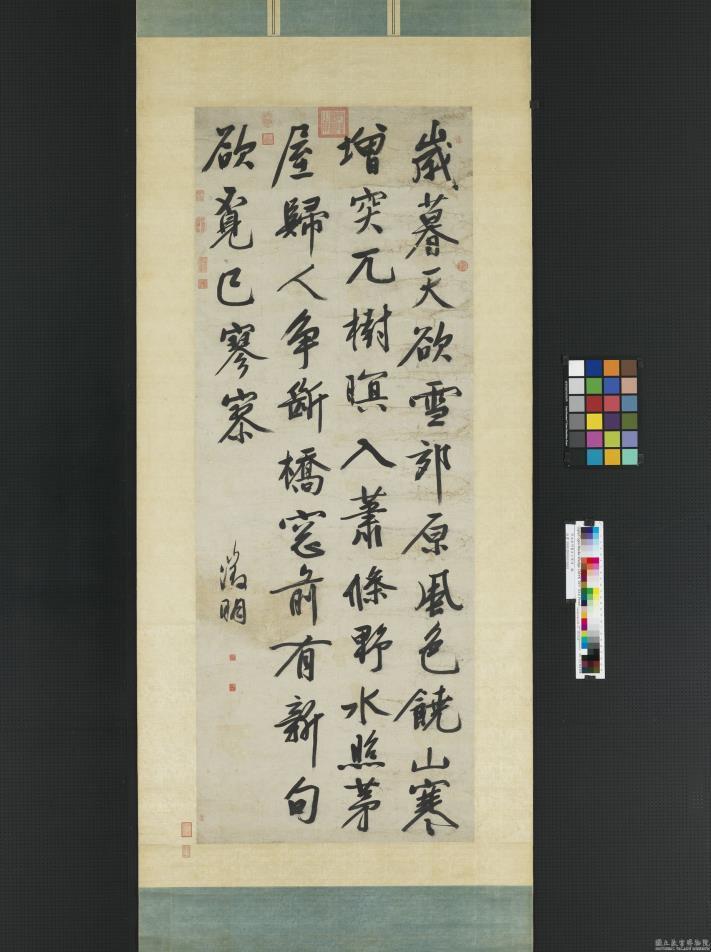 歲暮天欲雪郊原風色饒山寒
增突兀樹暝入蕭條野水照茅
屋歸人爭斷橋窓前有新句
欲覓已寥寥
徵明
國立故宮博物院